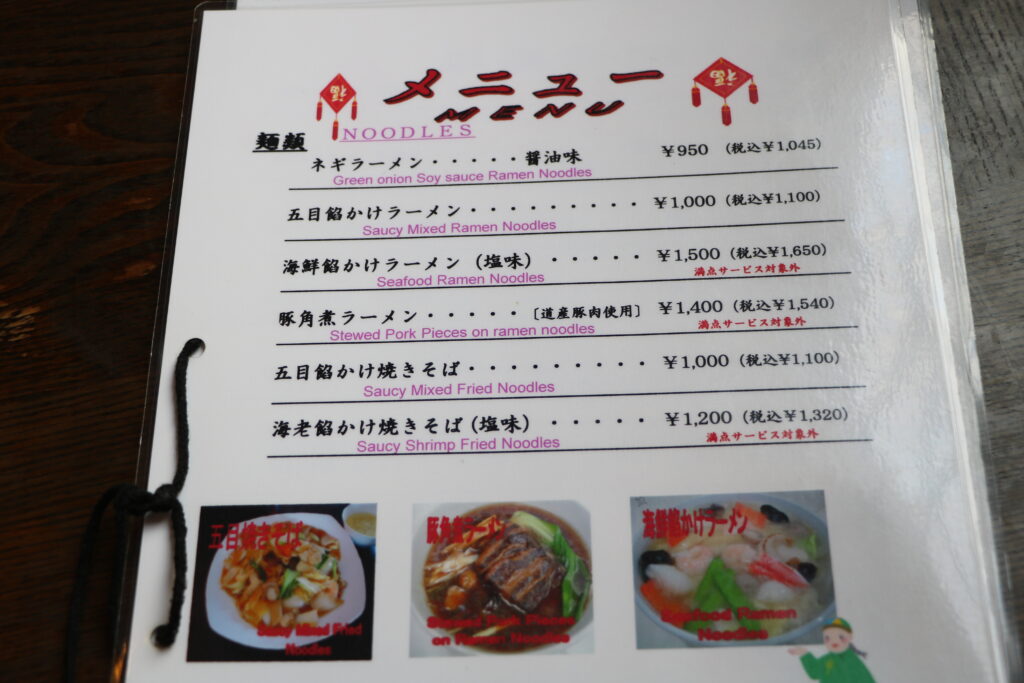 メニュー
MENU
麺類 NOODLES
ネギラーメン・・・・・醤油味 ￥950 (税込￥1,045)
Green onion Soy sauce Ramen Noodles
五目餡かけラーメン・・・・・・・・・ ￥1,000 (税込￥1,100)
Saucy Mixed Ramen Noodles
海鮮餡かけラーメン (塩味) ・・・・・ ￥1,500 (税込￥1,650)
Seafood Ramen Noodles 満点サービス対象外
豚角煮ラーメン・・・・・〔道産豚肉使用〕 ￥1,400 (税込￥1,540)
Stewed Pork Pieces on ramen noodles 満点サービス対象外
五目餡かけ焼きそば・・・・・・・・・ ￥1,000 (税込￥1,100)
Saucy Mixed Fried Noodles
海老餡かけ焼きそば (塩味) ・・・・・ ￥1,200 (税込￥1,320)
Saucy Shrimp Fried Noodles 満点サービス対象外
五目焼きそば
Saucy Mixed Fried
Noodles
豚角煮ラーメン
Stewed Pork Pieces
on Ramen Noodles
海鮮餡かけラーメン
Seafood Ramen
Noodles
福
福